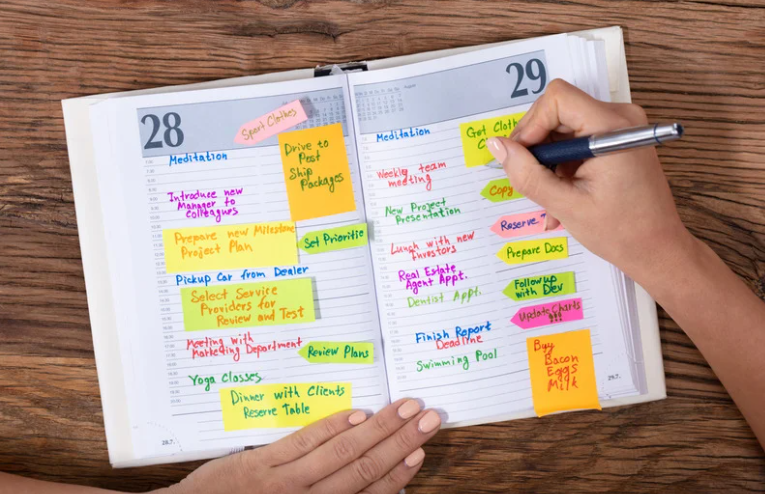 28
Sport Clothes
Meditation
Drive to
Post
Ship
Packages
Introduce new
Manager to
colleagues
Prepare new Milestone
Project Plan
Set Prioritie
Pickup Car from Dealer
Select Service
Providers for
Review and Test
Meeting with
Marketing Department
Review Plans
Yoga Classes
Dinner with Clients
Reserve Table
29
August
Meditation
Get Cloth
Weekly team
meeting
Copy
New Project
Presentation
Reserve
Lunch with new
Investors
Prepare Docs
Real Estate
Agent Appt.
Follow up
with Dev
Dentist Appt.
Update Charts
!!!
Finish Report
Deadline
Swimming Pool
Buy
Bacon
Eggs
Milk